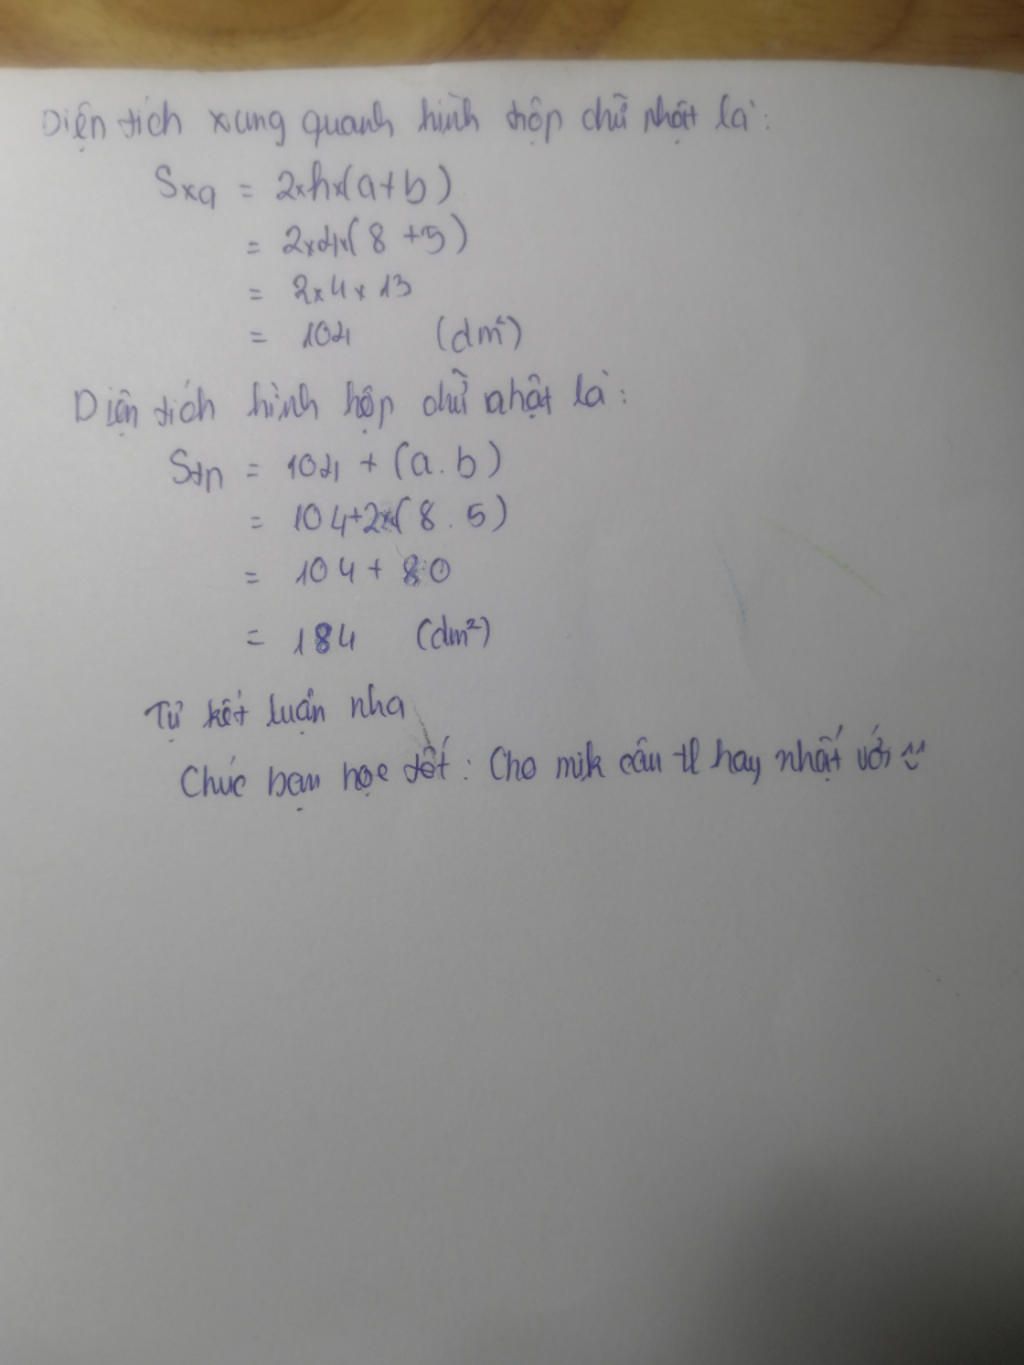 Diện tích xung quanh hình hộp chữ nhật là:
Sxq = 2×h×(a+b)
= 2×4×(8+5)
= 2×4×13
= 104 (dm²)
Diện tích hình hộp chữ nhật là:
Stp = 104 + (a.b)
= 104+2×(8.5)
= 104+80
= 184 (dm²)
Tự kết luận nha
Chúc bạn học tốt: Cho mik câu tl hay nhất với